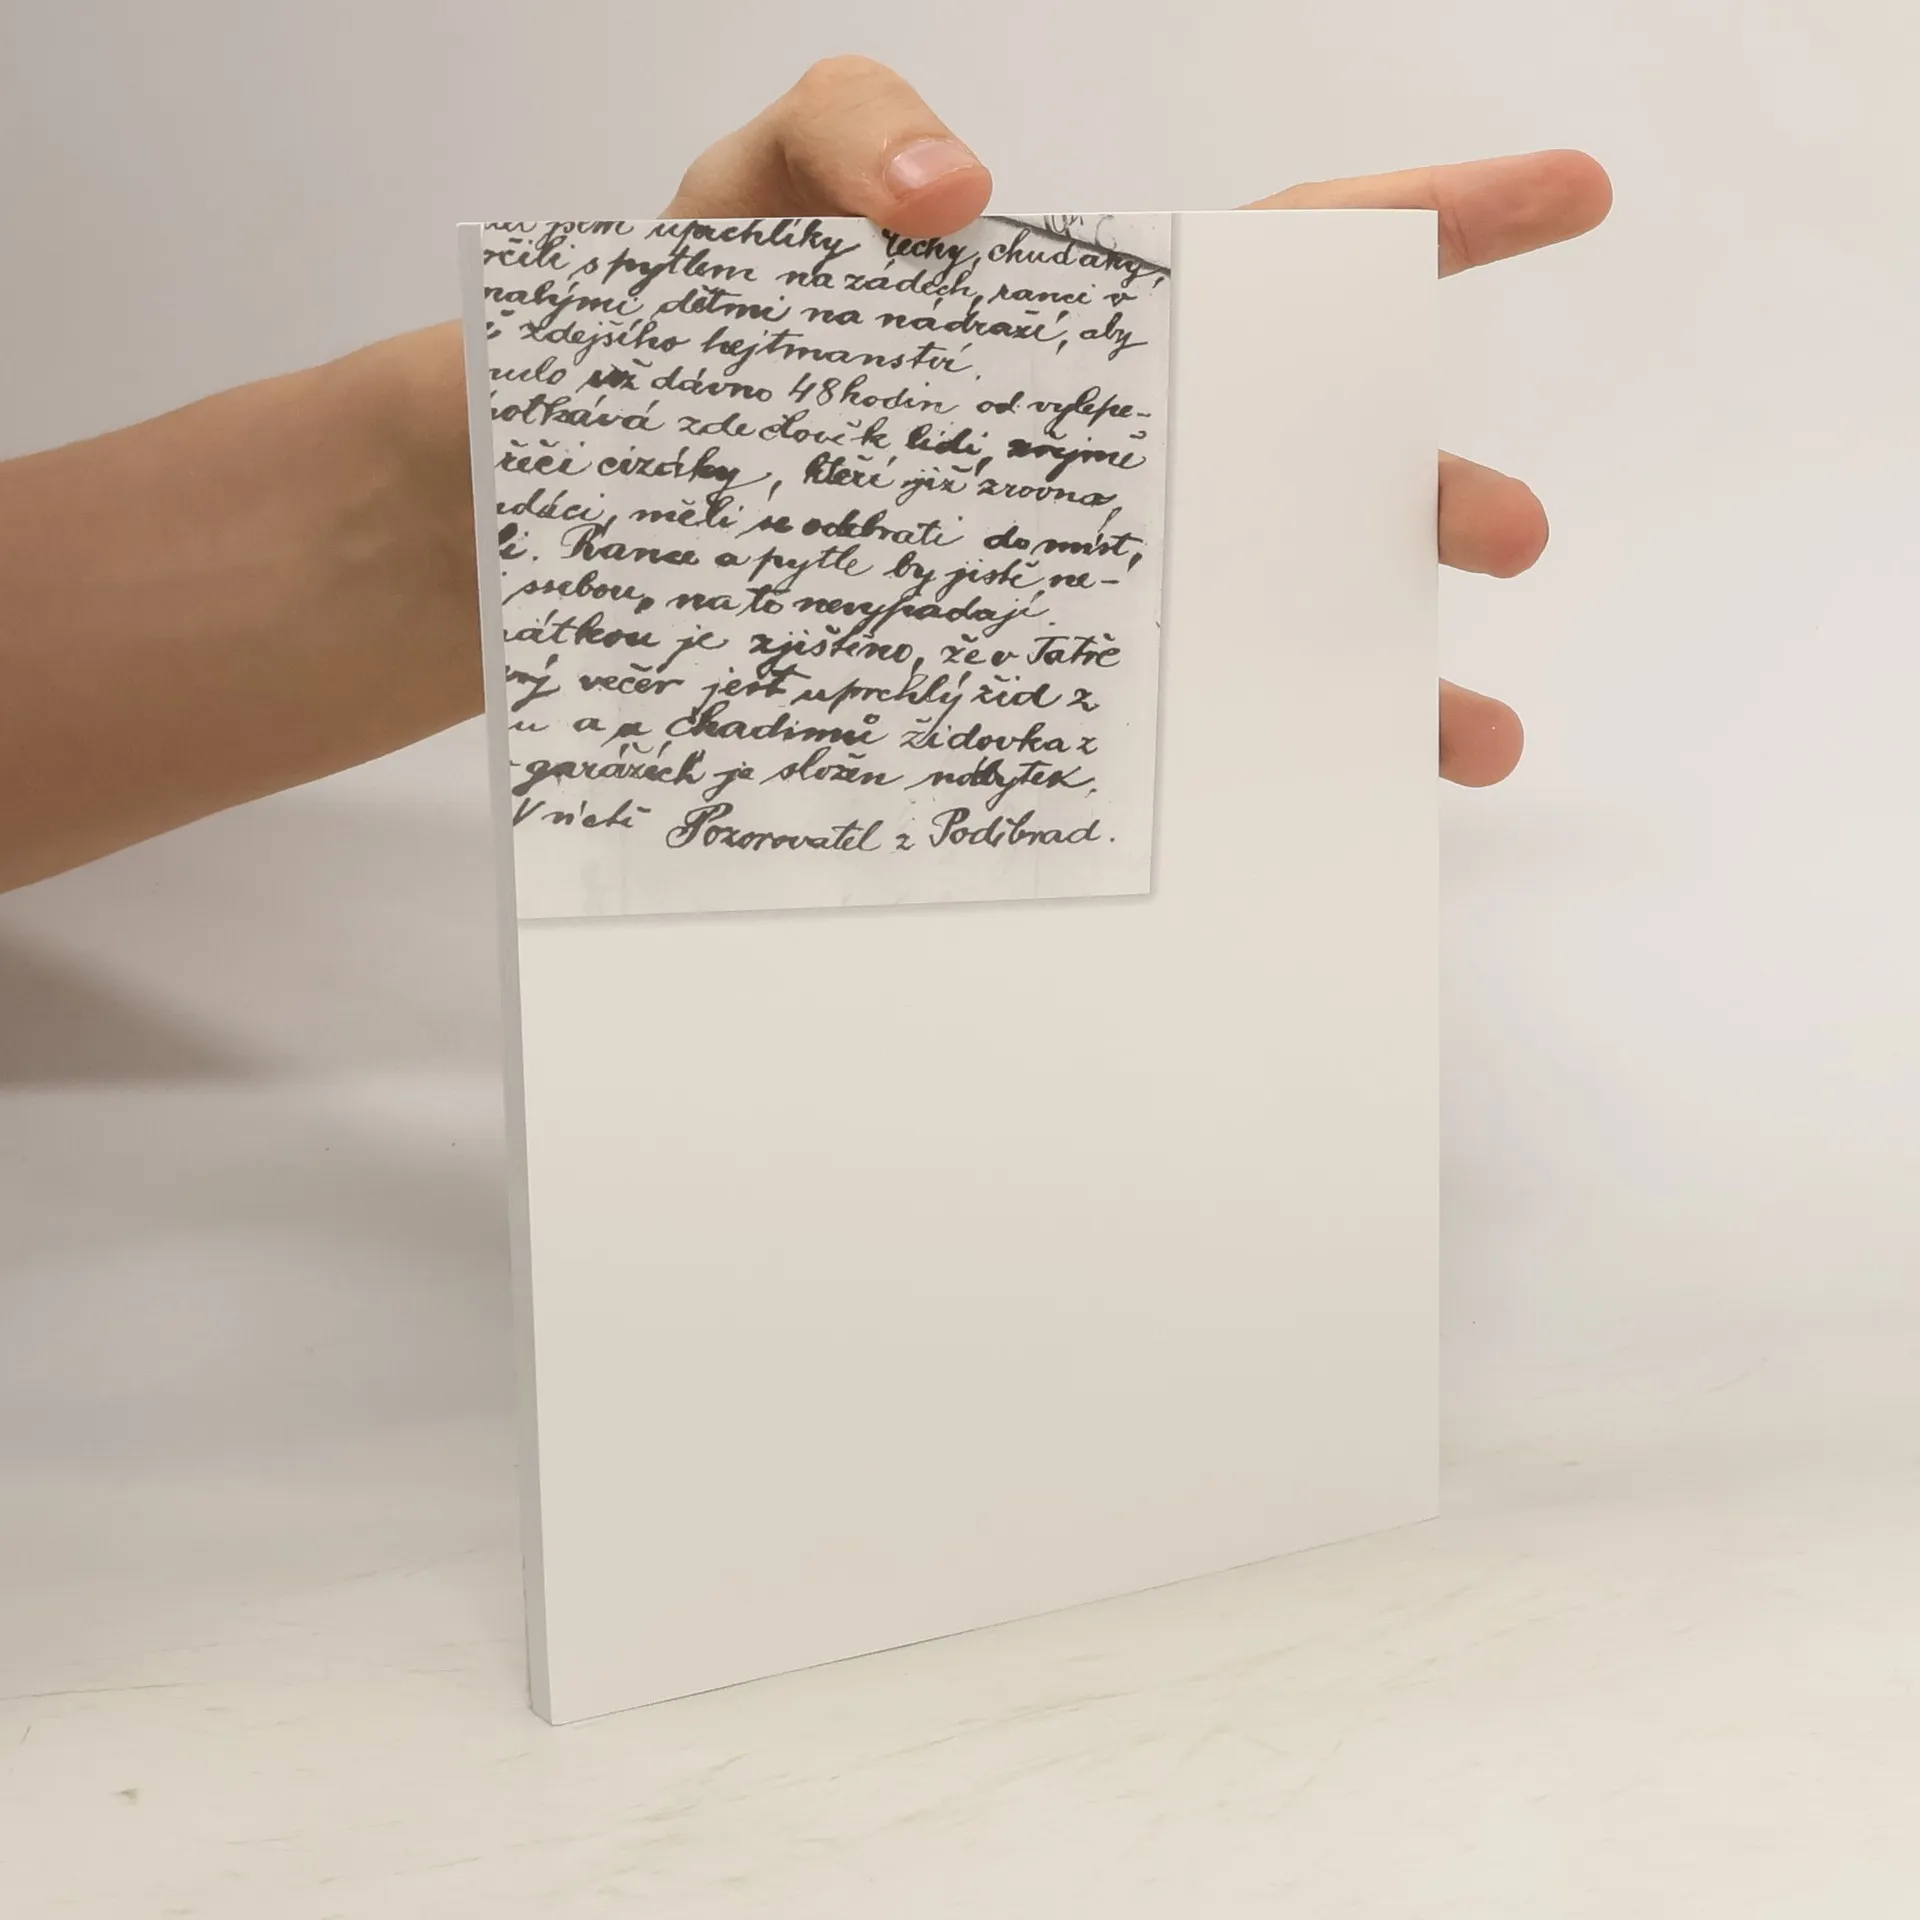 jsem uprchlíky Čechy, chuďasy,
s pytlem na zádech, ranci v
malými dětmi na nádraží, aby
zdejšího hejtmanství.
už dávno 48 hodin od vylepe-
potkává zde člověk lidi, zřejmě
řeči cizáky, kteří již zrovna,
měli se odebrati do míst,
Rance a pytle by jistě ne-
ssebou, na to nevypadají.
je zjištěno, že v Tatře
večer jest uprchlý žid z
a u Chadimů židovka z
garážích je složen nábytek.
V úctě Pozorovatel z Poděbrad.